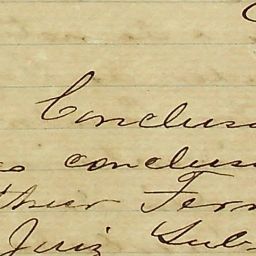 Conclus
conclus
thur Fer
Juiz Sub